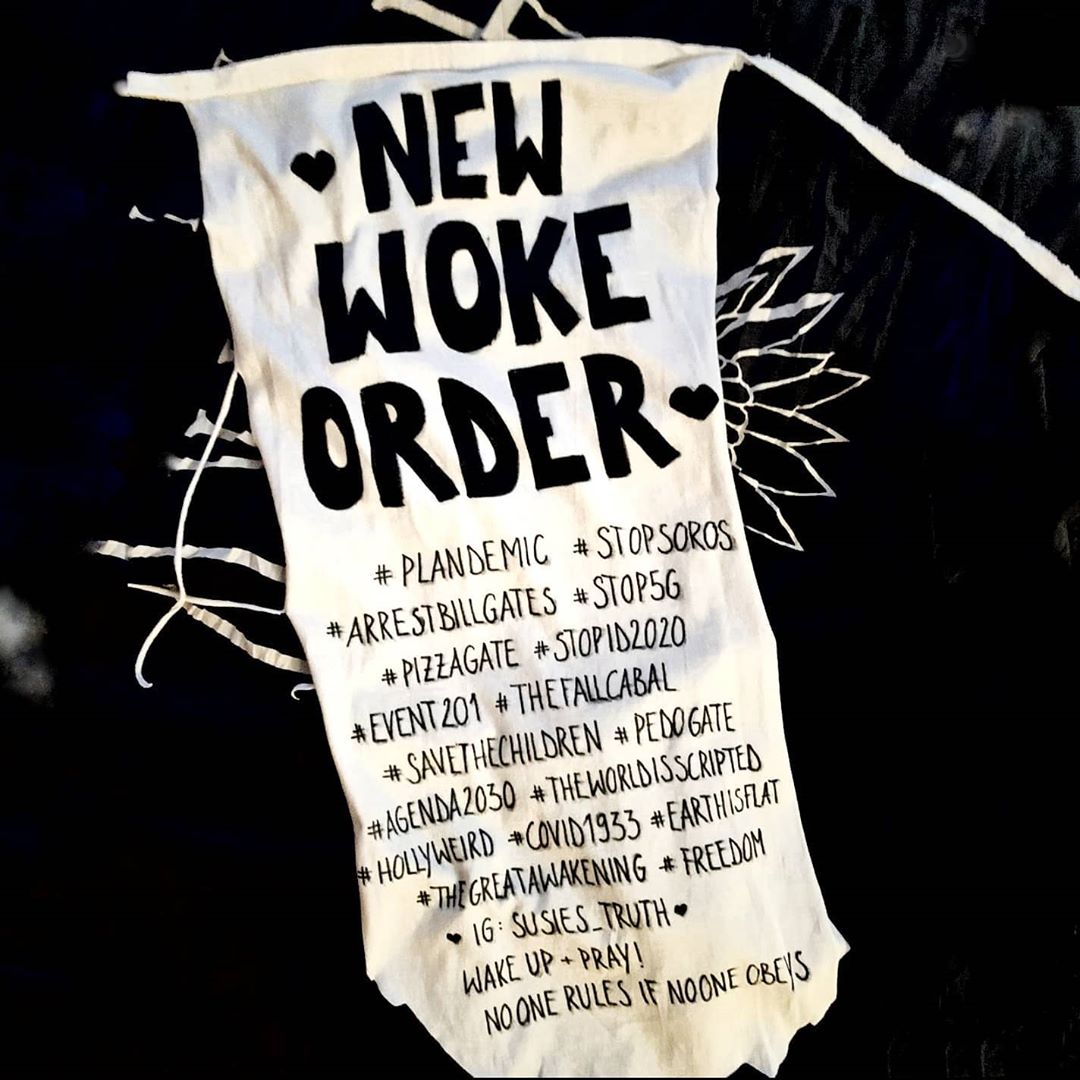 ♥ NEW
WOKE
ORDER ♥
# PLANDEMIC # STOPSOROS
#ARRESTBILLGATES #STOP5G
#PIZZAGATE #STOPID2020
#EVENT201 #THEFALLCABAL
#SAVETHECHILDREN #PEDOGATE
#AGENDA2030 #THEWORLDISSCRIPTED
# HOLLYWEIRD #COVID1933 #EARTHISFLAT
#THEGREATAWAKENING # FREEDOM
♥ IG: SUSIES_TRUTH ♥
WAKE UP + PRAY!
NO ONE RULES IF NO ONE OBEYS